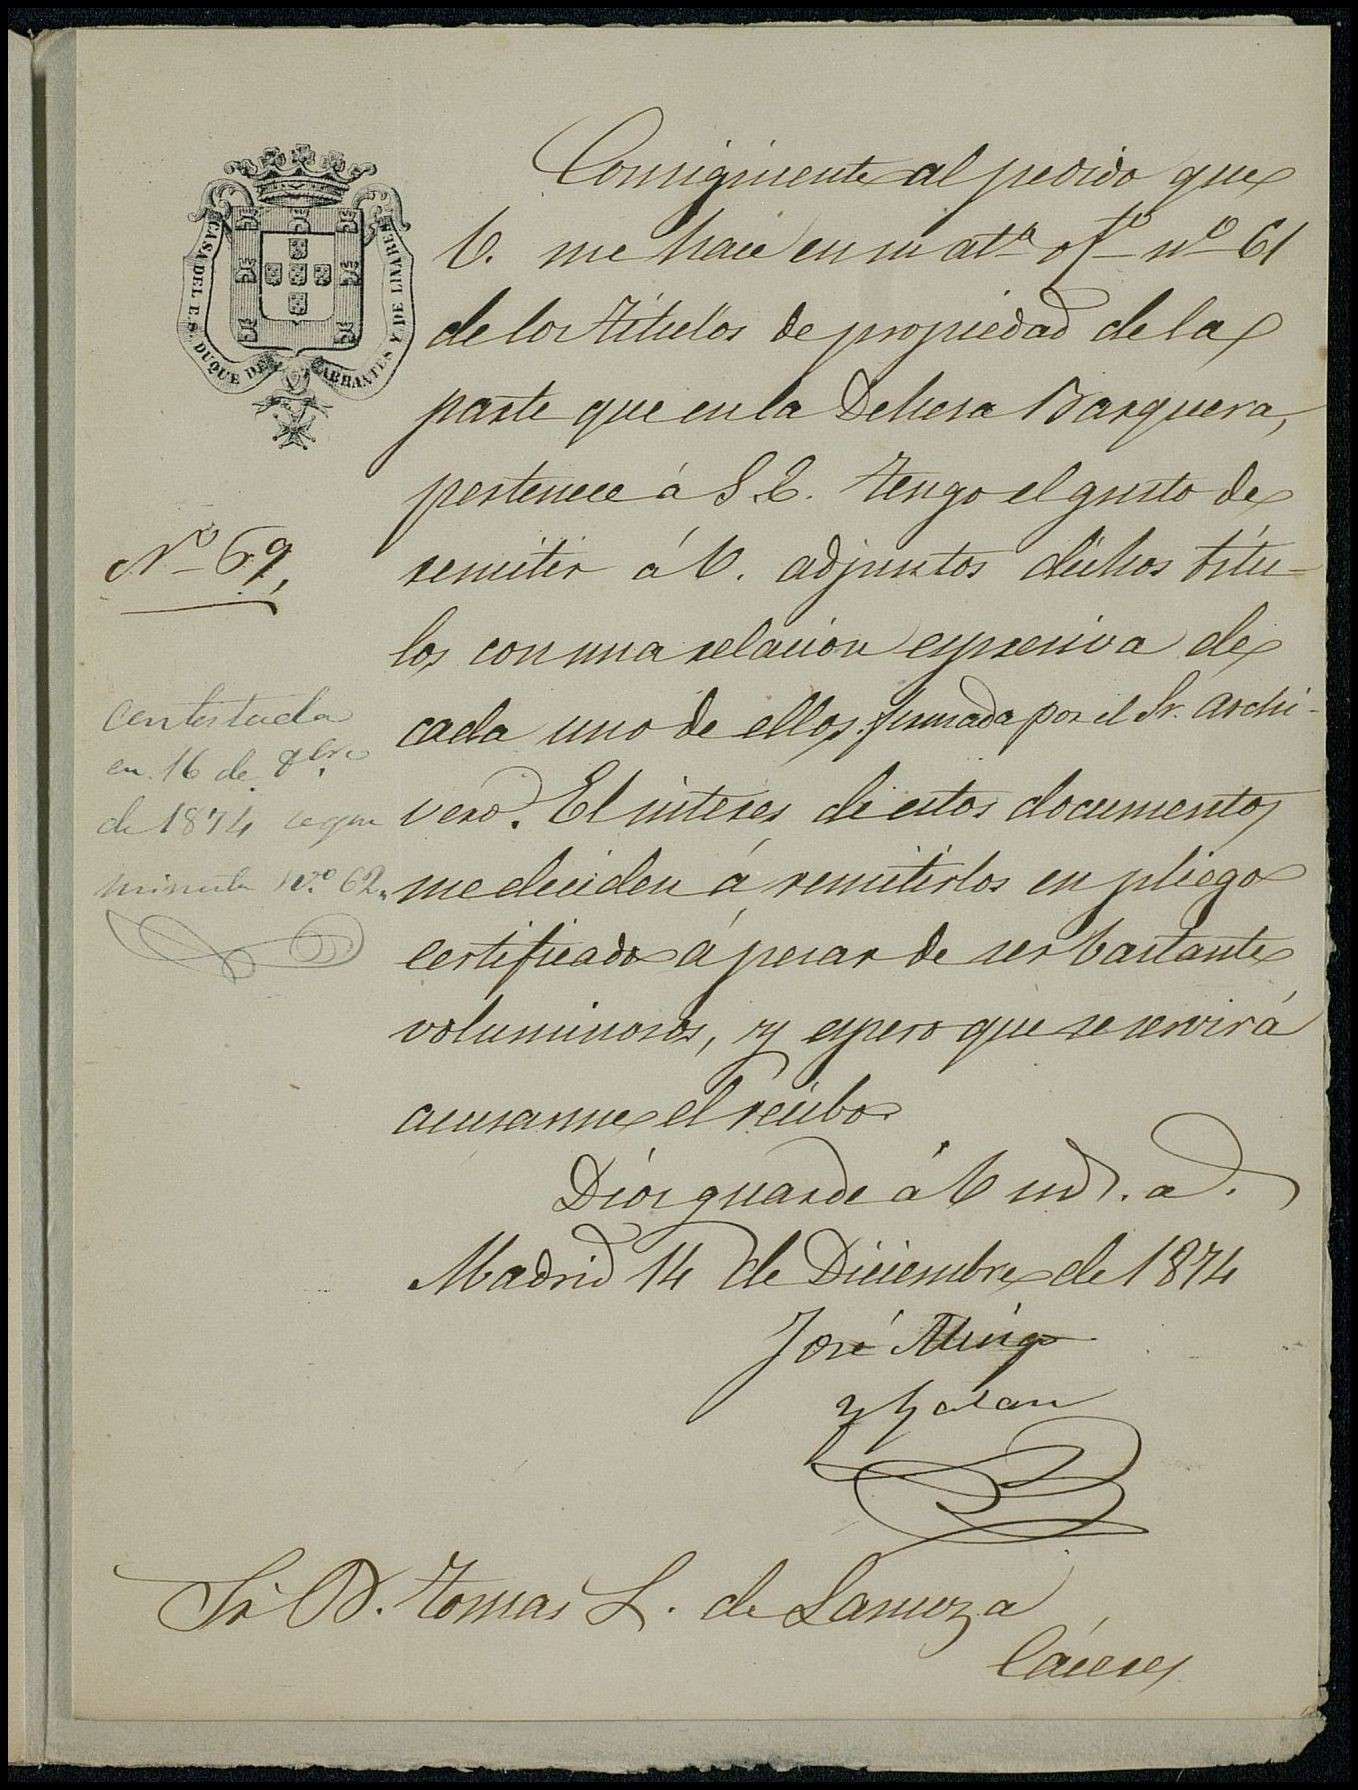 CASA DEL E. S. DUQUE DE ABRANTES Y DE LINARES
Consiguiente al pedido que
V. me hace en su at.ª of.º nº 61
de los títulos de propiedad de la
parte que en la Dehesa Barquera,
pertenece á S. E. tengo el gusto de
remitir á V. adjuntos dichos títu-
los con una relacion espresiva de
cada uno de ellos firmada por el Sr. Archi-
vero. El interes de estos documentos
me deciden á remitirlos en pliego
certificado á pesar de ser bastante
voluminosos, y espero que se servirá
acusarme el recibo
Dios guarde á V. m.s a.s
Madrid 14 de Diciembre de 1874
José
y Galan
Sr. D. Tomas L. de Lanuza
Cáceres
Nº 69,
Contestada
en 16 de
de 1874 segun
minuta Nº 62.